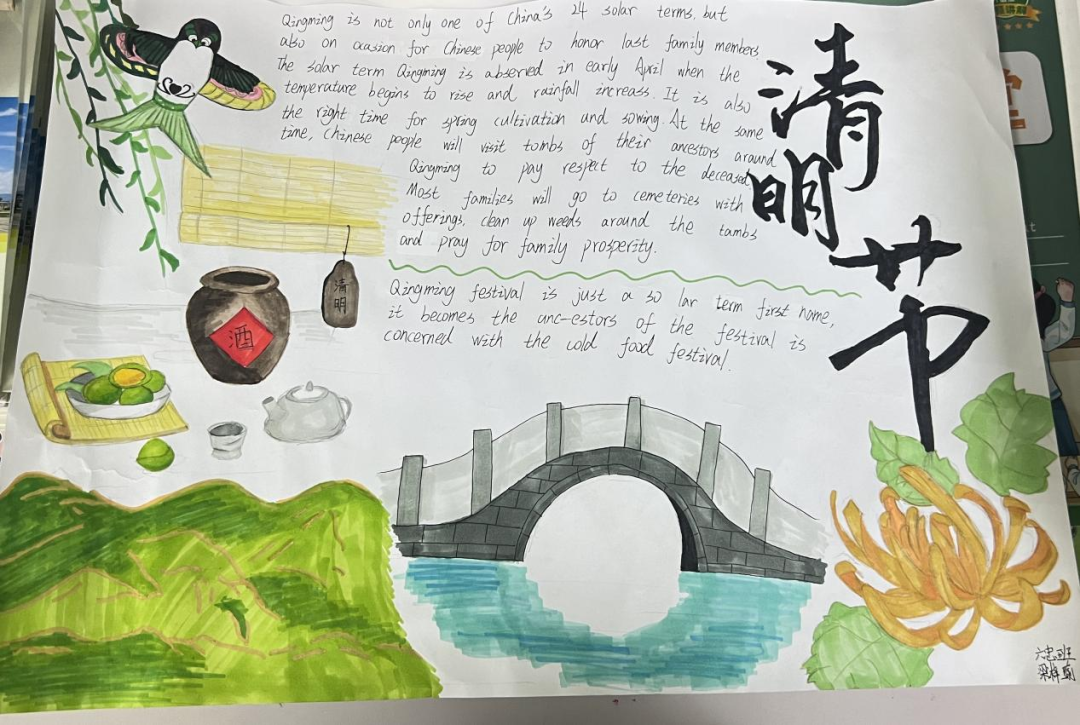 Qingming is not only one of China's 24 solar terms, but
also on ocasion for Chinese people to honor last family members.
The solar term Qingming is abseried in early April when the
temperature begins to rise and rainfall increass. It is also
the right time for spring cultivation and sowing. At the same
time, Chinese people will visit tombs of their ancestors around
Qingming to pay respect to the deceased.
Most families will go to cemeteries with
offerings, clean up weeds around the tambs
and pray for family prosperity.
Qingming festival is just a so lar term first nome,
it becomes the anc-estors of the festival is
concerned with the cold food festival.
清明节
清明
酒
班